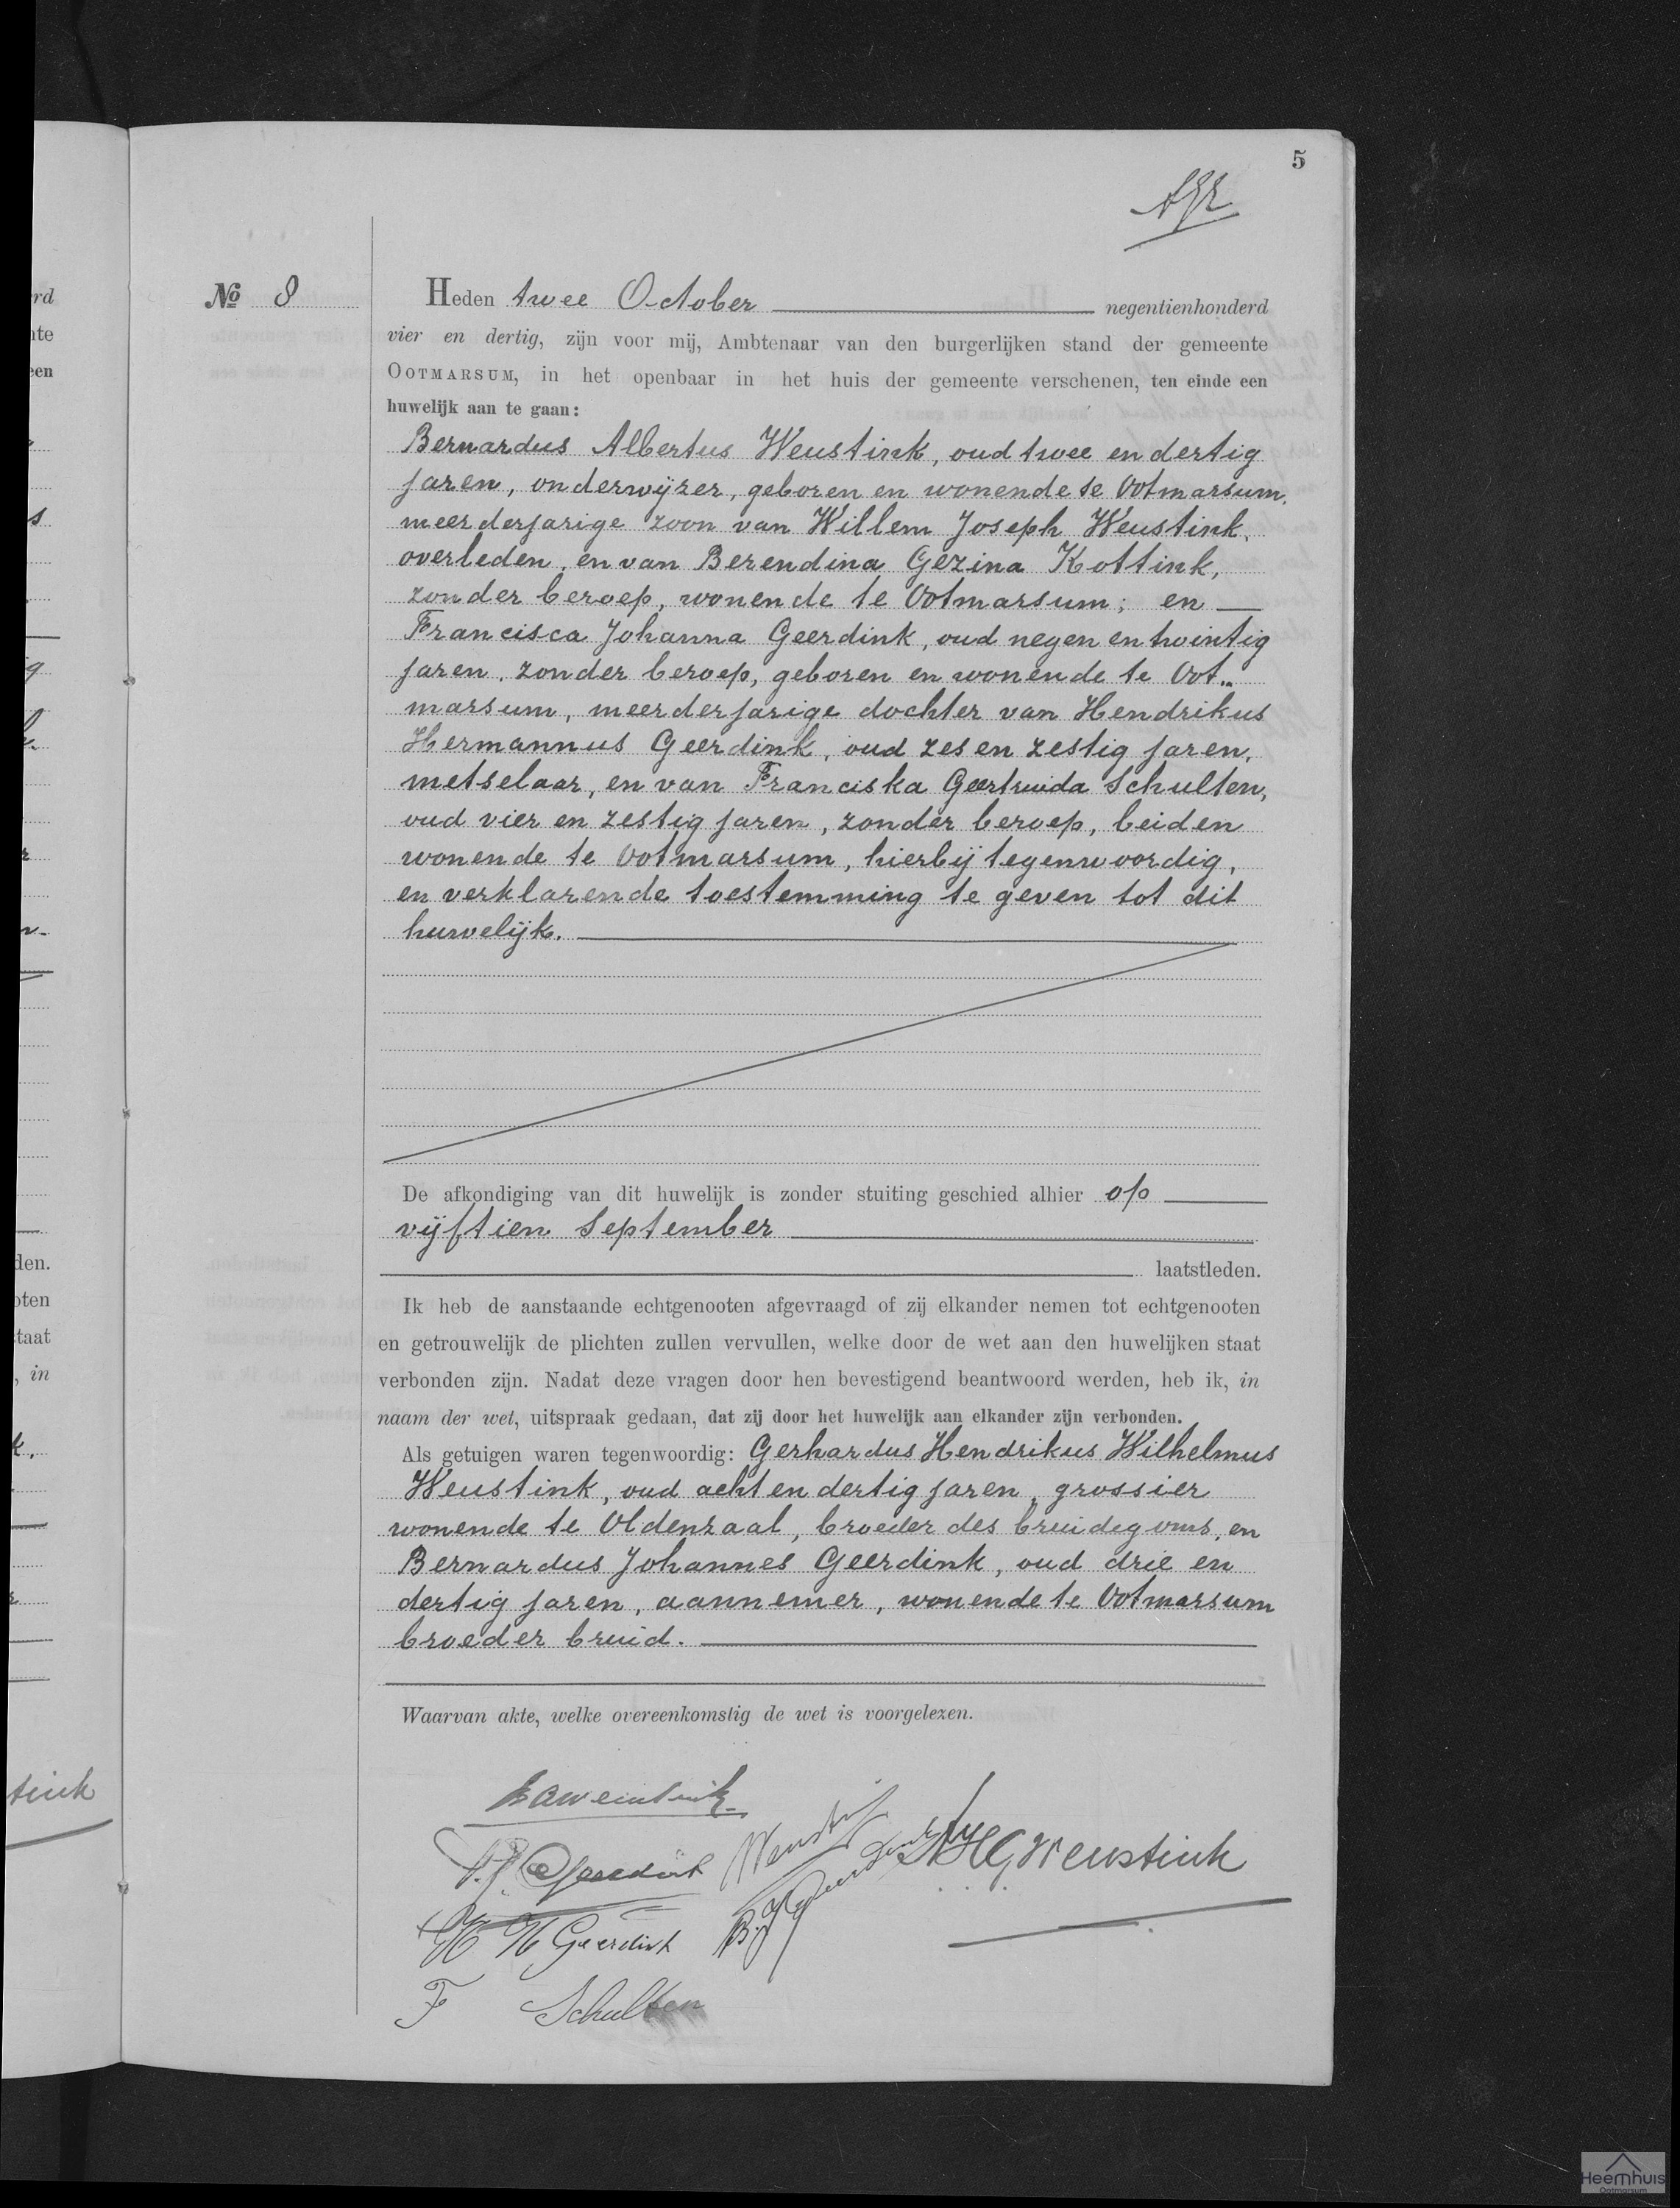 5
№ 8
Heden twee October negentienhonderd
vier en dertig, zijn voor mij, Ambtenaar van den burgerlijken stand der gemeente
OOTMARSUM, in het openbaar in het huis der gemeente verschenen, ten einde een
huwelijk aan te gaan:
Bernardus Albertus Weustink, oud twee en dertig
jaren, onderwijzer, geboren en wonende te Ootmarsum,
meerderjarige zoon van Willem Joseph Weustink,
overleden, en van Berendina Gezina Kottink,
zonder beroep, wonende te Ootmarsum; en
Francisca Johanna Geerdink, oud negen en twintig
jaren, zonder beroep, geboren en wonende te Oot„
marsum, meerderjarige dochter van Hendrikus
Hermannus Geerdink, oud zes en zestig jaren,
metselaar, en van Franciska Geertruida Schulten,
oud vier en zestig jaren, zonder beroep, beiden
wonende te Ootmarsum, hierbij tegenwoordig,
en verklarende toestemming te geven tot dit
huwelijk.
De afkondiging van dit huwelijk is zonder stuiting geschied alhier op
vijftien September
laatstleden.
Ik heb de aanstaande echtgenooten afgevraagd of zij elkander nemen tot echtgenooten
en getrouwelijk de plichten zullen vervullen, welke door de wet aan den huwelijken staat
verbonden zijn. Nadat deze vragen door hen bevestigend beantwoord werden, heb ik, in
naam der wet, uitspraak gedaan, dat zij door het huwelijk aan elkander zijn verbonden.
Als getuigen waren tegenwoordig: Gerhardus Hendrikus Wilhelmus
Weustink, oud acht en dertig jaren, grossier
wonende te Oldenzaal, broeder des bruidegoms, en
Bernardus Johannes Geerdink, oud drie en
dertig jaren, aannemer, wonende te Ootmarsum
broeder bruid.
Waarvan akte, welke overeenkomstig de wet is voorgelezen.
BAWeustink
Geerdink Weustink
Weustink
H H Geerdink
F Schulten
tink
Heemhuis
Ootmarsum